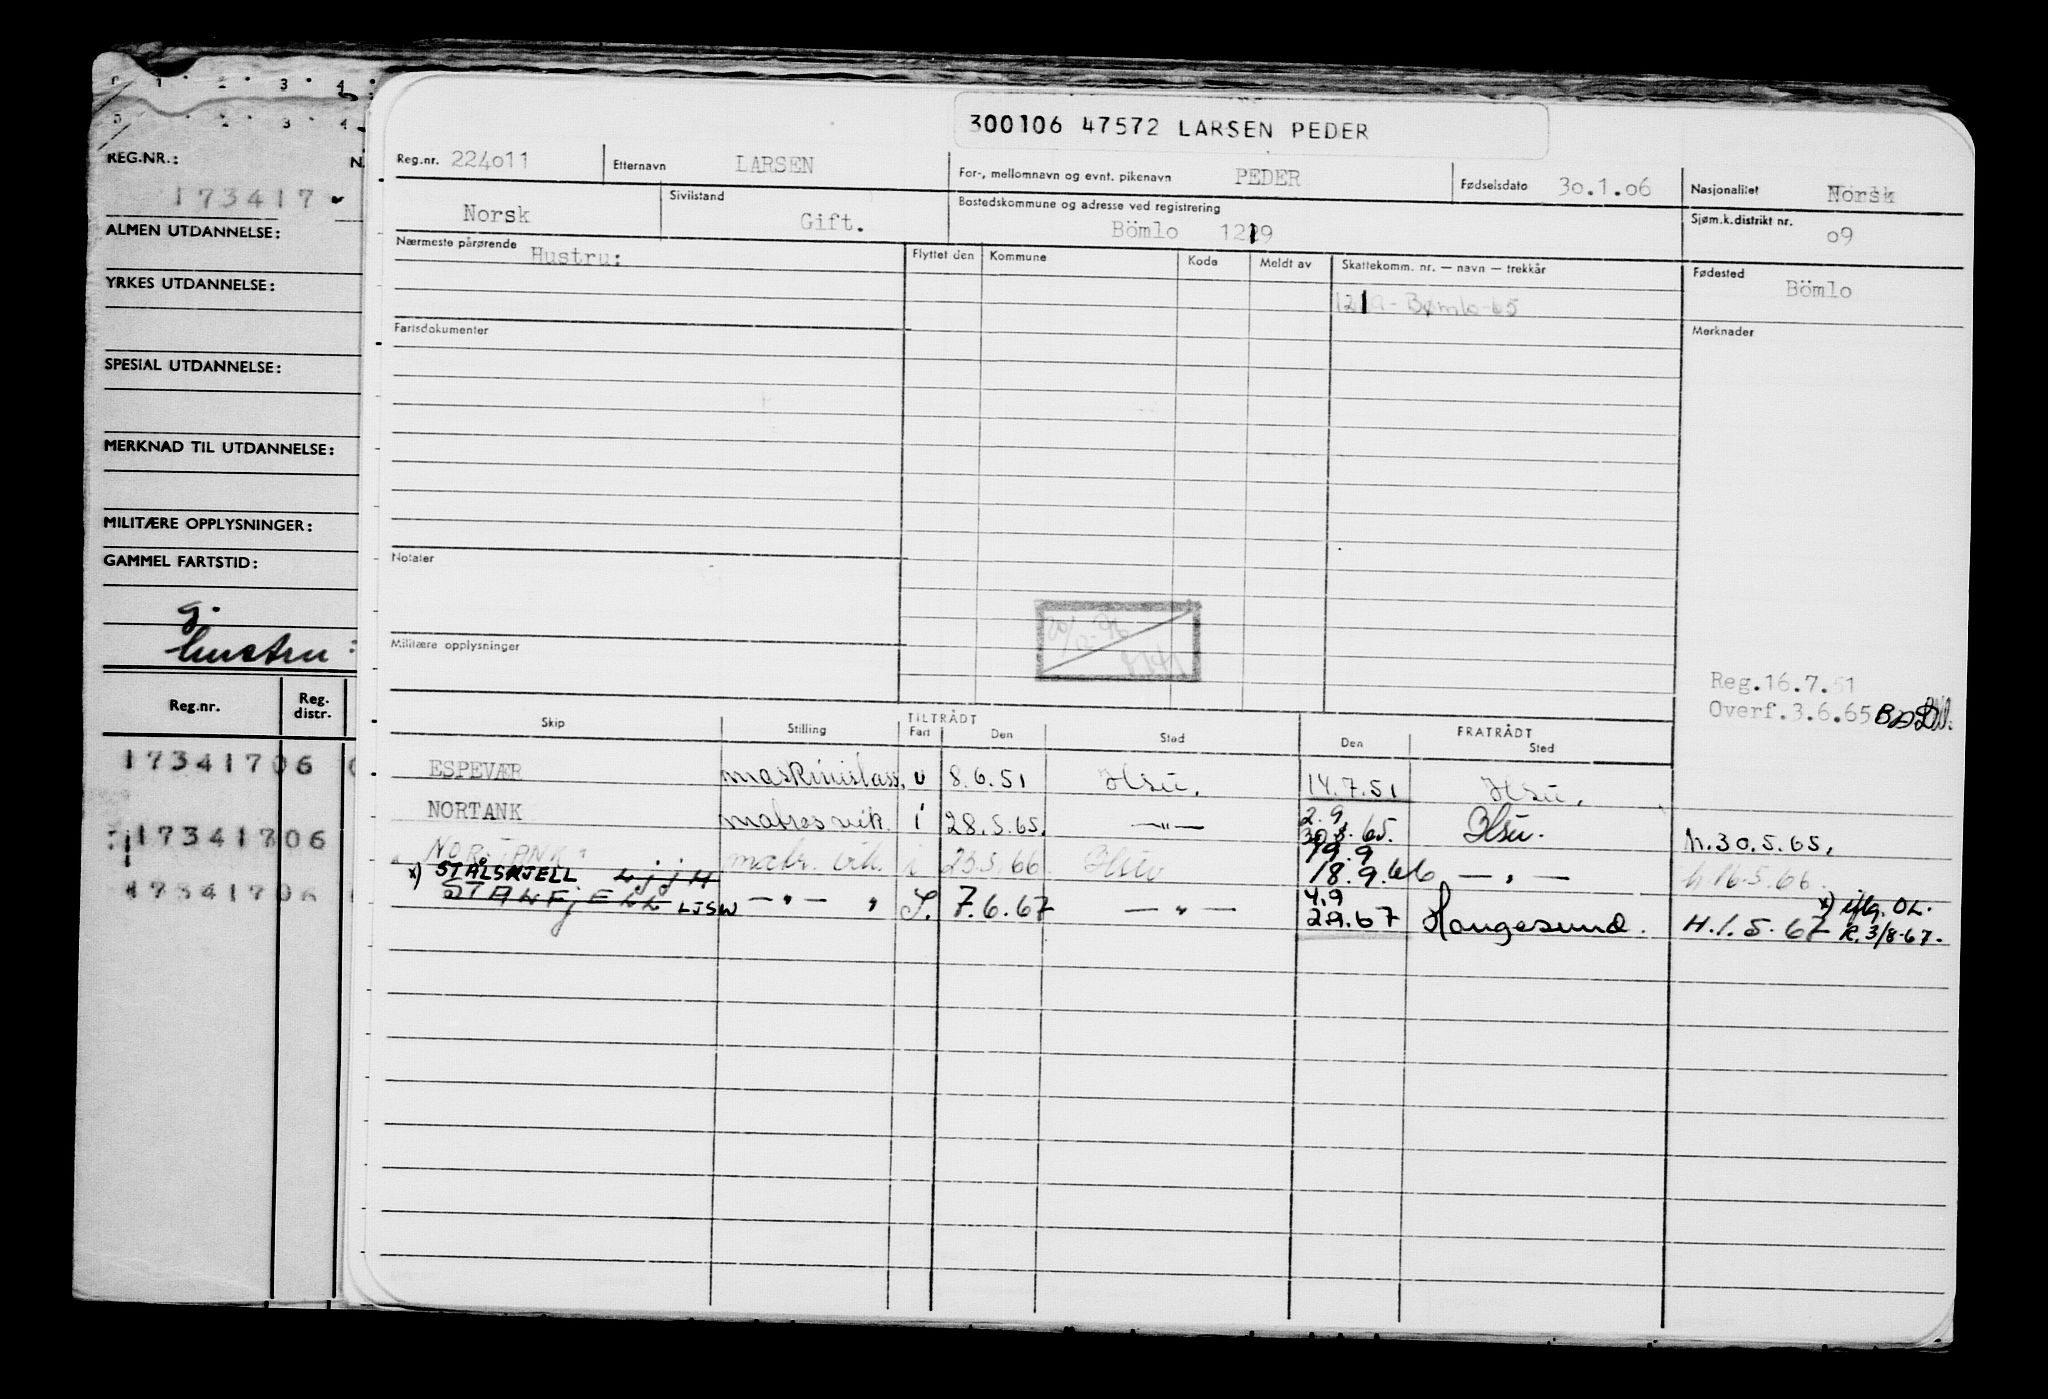 1 2 3 4
2 3 4
REG.NR.:
173417
ALMEN UTDANNELSE:
YRKES UTDANNELSE:
SPESIAL UTDANNELSE:
MERKNAD TIL UTDANNELSE:
MILITÆRE OPPLYSNINGER:
GAMMEL FARTSTID:
g.
hustru:
Reg.nr. Reg. distr.
17341706
17341706
17341706
300106 47572 LARSEN PEDER
Reg.nr. 224011 Etternavn LARSEN For-, mellomnavn og evnt. pikenavn PEDER Fødselsdato 30.1.06 Nasjonalitet Norsk
Norsk Sivilstand Gift. Bostedskommune og adresse ved registrering Bömlo 1219 Sjøm.k.distrikt nr. 09
Nærmeste pårørende Hustru: Flyttet den Kommune Kode Meldt av Skattekomm. nr. — navn — trekkår Fødested Bömlo
1219-Bømlo-65
Fartsdokumenter Merknader
Notater
Militære opplysninger
Reg.16.7.51
Overf.3.6.65
Skip Stilling TILTRÅDT Fart Den Sted FRATRÅDT Den Sted
ESPEVÆR maskinistass. u 8.6.51 Hsu. 14.7.51 Hsu.
NORTANK matros vik. i 28.5.65. —"— 2.9. 65. Hsu. h.30.5.65.
NORTANK matr. vik. i 23.5.66 Hsu 19.9 18.9.66 —"— h.16.5.66.
x) STÅLSKJELL
STALFJELL LJSW —"— " 7.6.67 —"— 4.9 2.9.67 Haugesund. H.1.5.67 x) iflg. OL.
R.3/8-67.